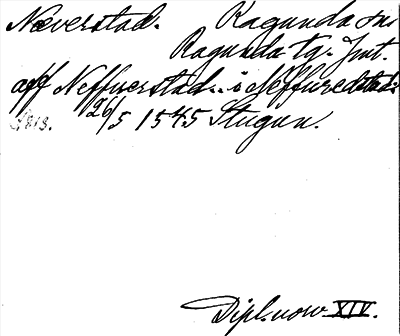 Næverstad. Ragunda sn
Ragunda tg. Jmt.
aff Neffuerstad.. i Neffuredstad.
26/5 1545 Stugun.
Dipl. norv. XIV.